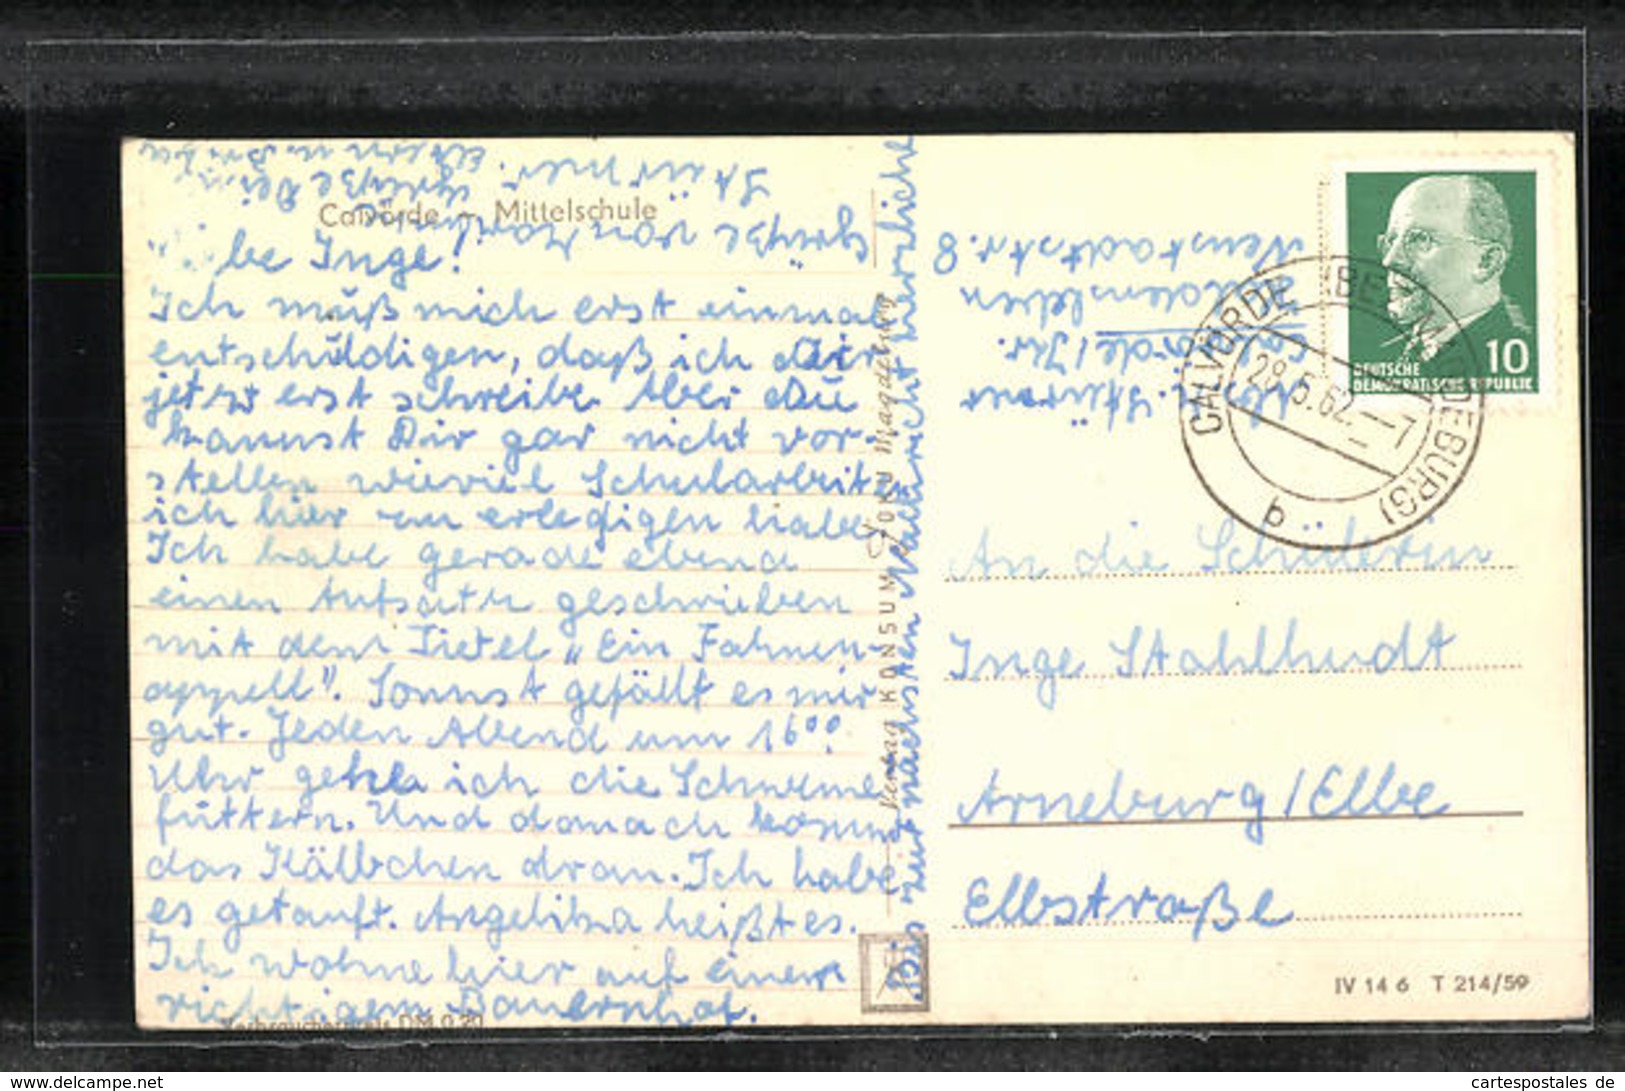 Calvörde – Mittelschule
be Inge!
Ich muß mich erst einmal
entschuldigen, daß ich Dir
jetzt erst schreibe Aber Du
kannst Dir gar nicht vor-
stellen wieviel Schularbeiten
ich hier zu erledigen habe
Ich habe gerade ebend
einen Aufsatz geschrieben
mit dem Tietel „Ein Fahnen-
appell". Sonnst gefällt es mir
gut. Jeden Abend um 16⁰⁰
Uhr gehe ich die Schweine
füttern. Und danach kommt
das Kälbchen dran. Ich habe
es getauft. Angelika heißt es.
Ich wohne hier auf einem
richtigem Bauernhof.
Bis zur nächsten Nachricht herzliche
Grüße von
Stürmer.
Grüße Deine
Eltern u.
Verbraucherpreis DM 0,20
Verlag KONSUM Foku Magdeburg
Abs. Stürmer
Calvörde/Kr.
Haldensleben
Neustadtstr. 8
DEUTSCHE
DEMOKRATISCHE REPUBLIK
10
CALVÖRDE (BEZ MAGDEBURG)
28.5.62.–7
b
An die Schülerin
Inge Stahlhudt
Arneburg/Elbe
Elbstraße
IV 14 6 T 214/59
https://www.delcampe.net
cartespostales de